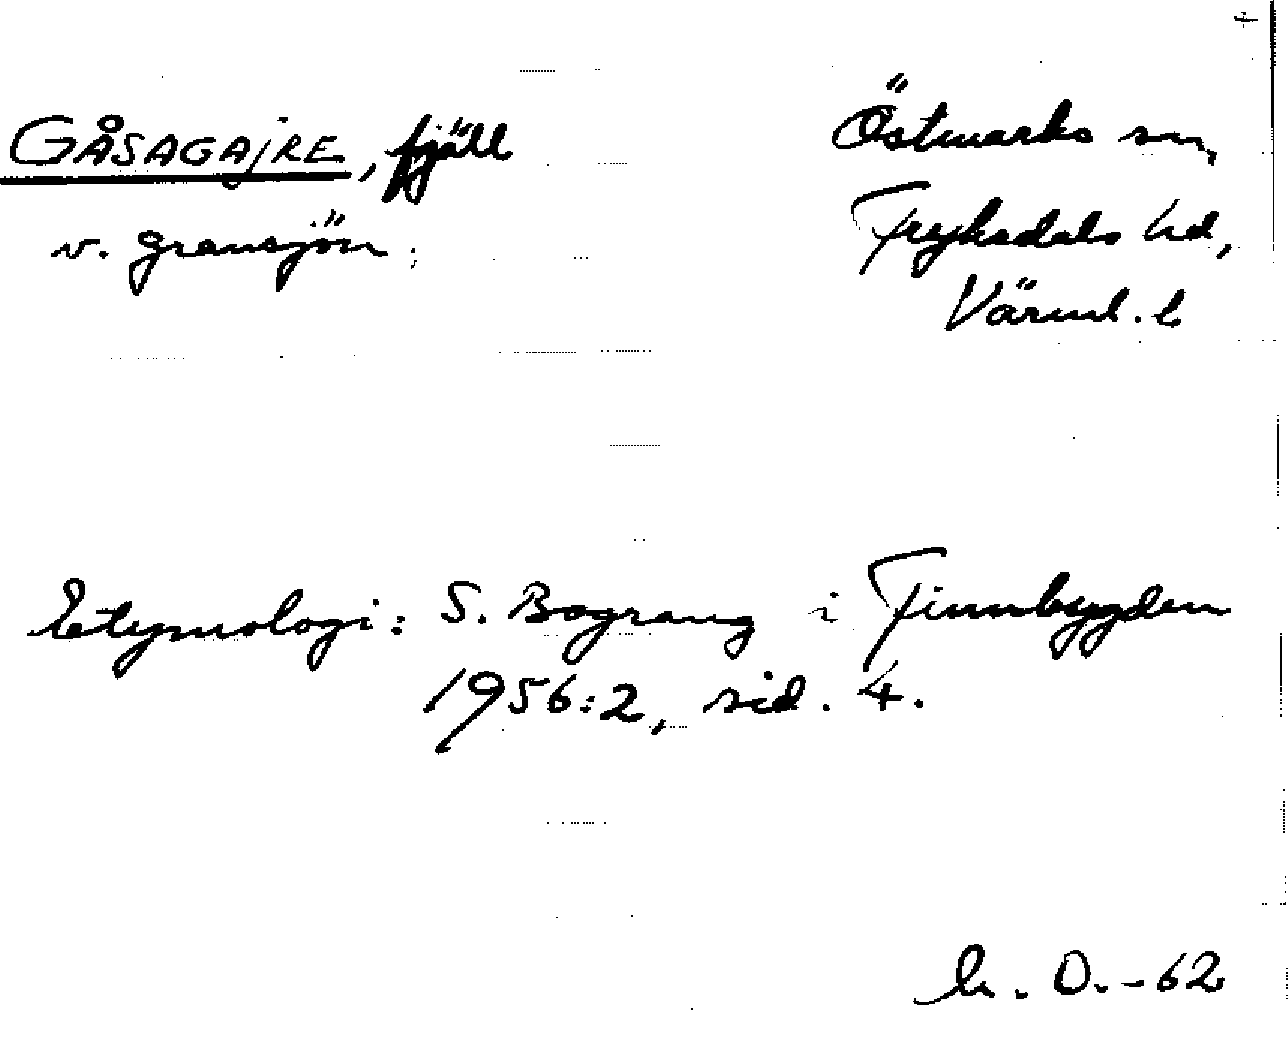 GÅSAGAJRE, fjäll
v. gransjön;
Östmarks sn,
Fryksdals hd,
Värml. l
Etymologi: S. Bograng i Finnbygden
1956:2, sid. 4.
h. D. -62